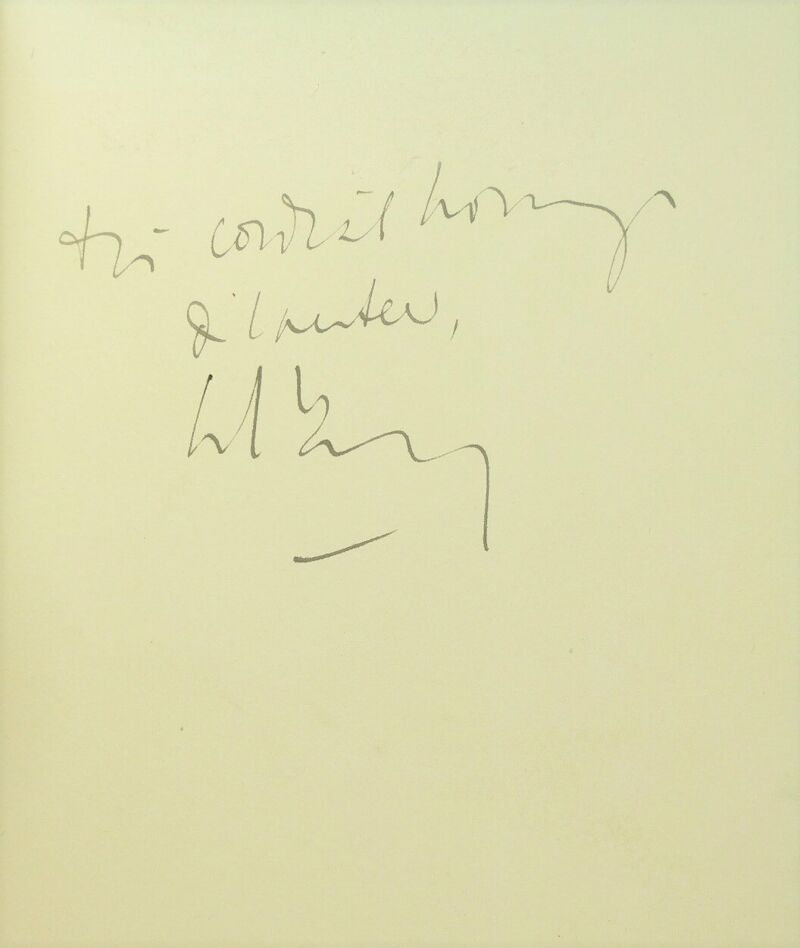 très cordial hommage
de l'auteur,